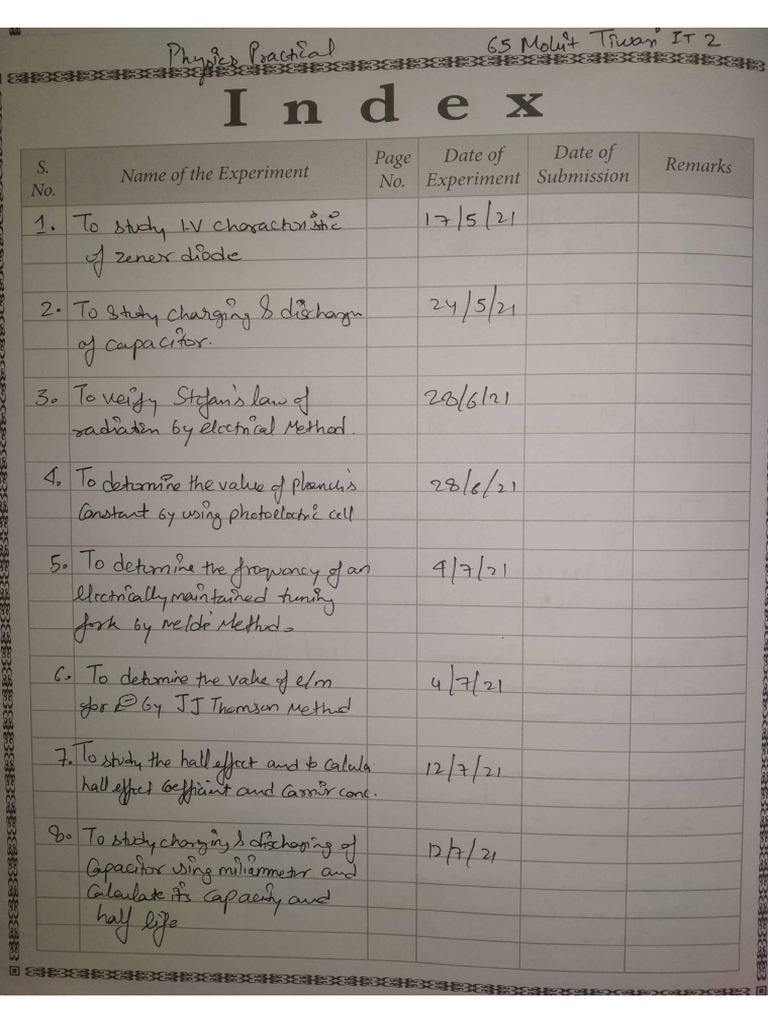 Physics Practical 65 Mohit Tiwari IT 2
Index
S. No. Name of the Experiment Page No. Date of Experiment Date of Submission Remarks
1. To study I-V charactoristic 17/5/21
of zener diode
2. To study charging & discharge 24/5/21
of capacitor.
3. To veify Stefan's law of 28/6/21
radiation by electrical Method.
4. To determine the value of planck's 28/6/21
Constant by using photoelectric cell
5. To determine the frequency of an 4/7/21
electrically maintained tuning
fork by melde Method.
6. To determine the value of e/m 4/7/21
for e by JJ Thomson Method
7. To study the hall effect and to Calcula 12/7/21
hall effect Coefficient and Carrier conc.
8. To study charging & discharging of 12/7/21
Capacitor using miliammeter and
Calculate its capacity and
half life